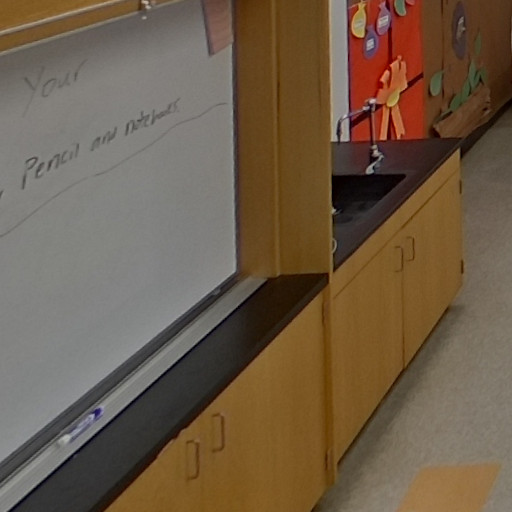 Your
Pencil and notebooks